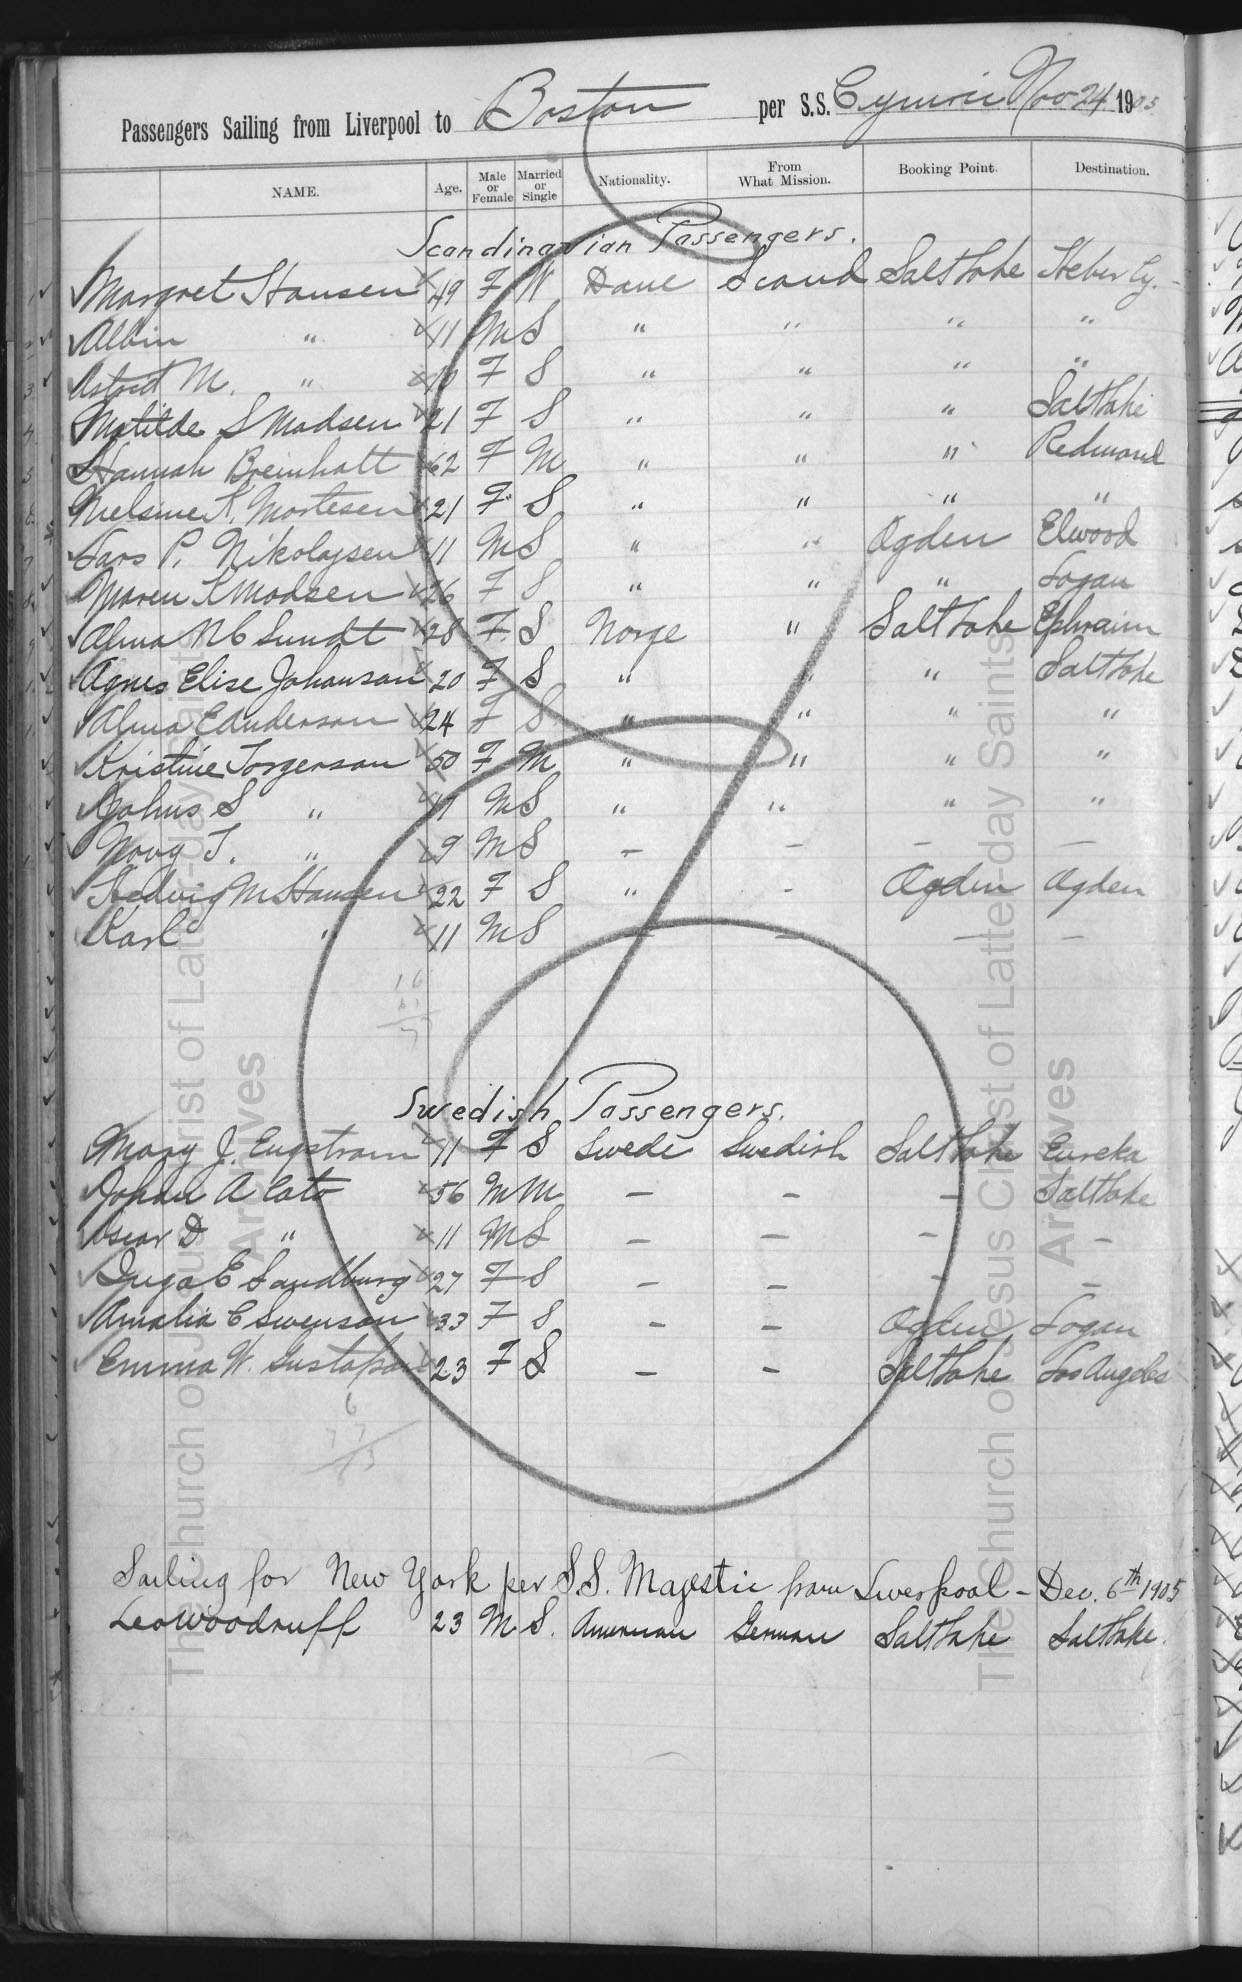 Passengers Sailing from Liverpool to Boston per S.S. Cymric Nov 24 1905
NAME. Age. Male or Female Married or Single Nationality. From What Mission. Booking Point. Destination.
Scandinavian Passengers.
Margret Hansen 49 F W Dane Scand Salt Lake Heber Cy.
Albin " 11 M S " " " "
Astrid M. " 10 F S " " " "
Matilde S Madsen 21 F S " " " Salt Lake
Hannah Breinholt 62 F M " " " Redmond
Nielsine K. Mortesen 21 F S " " " "
Lars P. Nikolajsen 11 M S " " Ogden Elwood
Maren K Madsen 26 F S " " " Logan
Alma N C Lundt 28 F S Norge " Salt Lake Ephraim
Agnes Elise Johanson 20 F S " " " Salt Lake
Alma E Anderson 24 F S " " " "
Kristine Torgerson 50 F M " " " "
Johns S " 11 M S " " " "
T. " 9 M S — — — —
Hedvig M Hansen 22 F S " - Ogden Ogden
Karl " 11 M S — — — —
16
Swedish Passengers.
Mary J. Engstrom 11 F S Swede Swedish Salt Lake Eureka
Johan A Cato 56 M M — — — Salt Lake
Oscar D " 11 M S — — — —
Inga E Sandburg 27 F S — — — —
Amalia C Swenson 33 F S — — Ogden Logan
Emma W. Gustafson 23 F S — — Salt Lake Los Angeles
6
Sailing for New York per S.S. Majestic from Liverpool - Dec. 6th 1905
Leo Woodruff 23 M S. American German Salt Lake Salt Lake.
The Church of Jesus Christ of Latter-day Saints
Archives
The Church of Jesus Christ of Latter-day Saints
Archives